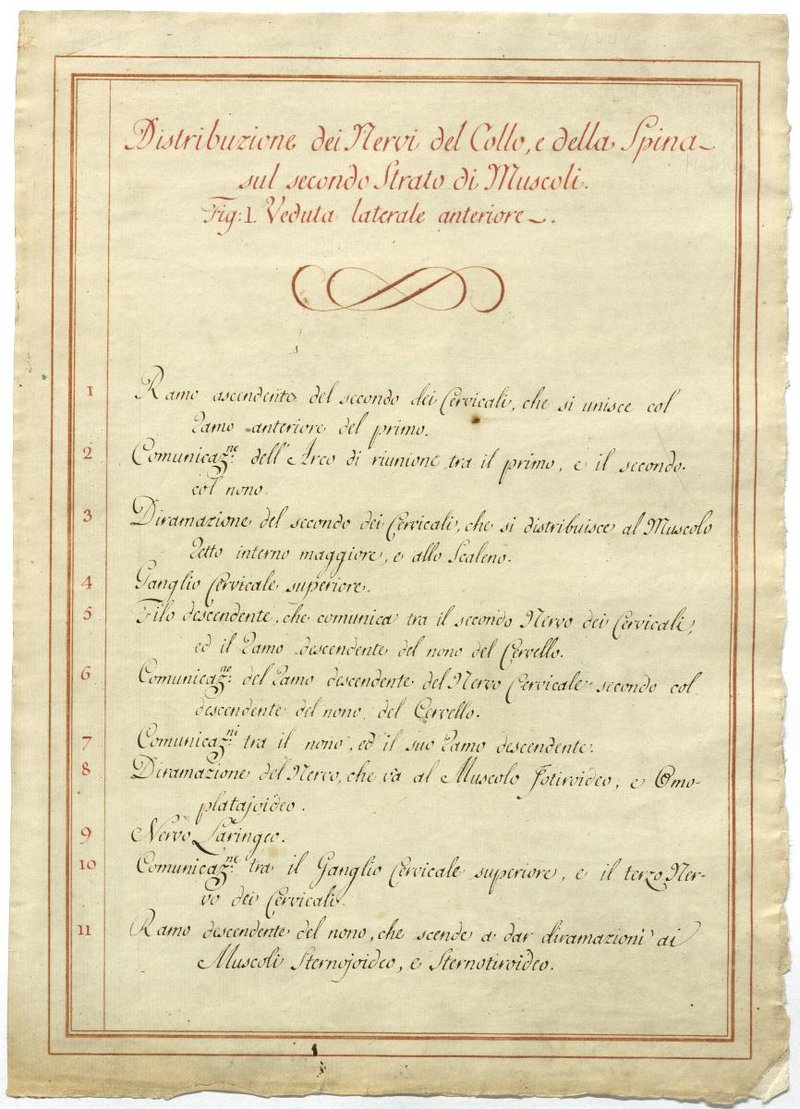 Distribuzione dei Nervi del Collo, e della Spina
sul secondo Strato di Muscoli.
Fig: 1. Veduta laterale anteriore.
1 Ramo ascendente del secondo dei Cervicali, che si unisce col
Ramo anteriore del primo.
2 Comunicaz:ne dell'Arco di riunione tra il primo, e il secondo
col nono.
3 Diramazione del secondo dei Cervicali, che si distribuisce al Muscolo
Retto interno maggiore, e allo Scaleno.
4 Ganglio Cervicale superiore.
5 Filo descendente, che comunica tra il secondo Nervo dei Cervicali,
ed il Ramo descendente del nono del Cervello.
6 Comunicaz:ne del Ramo descendente del Nervo Cervicale secondo col
descendente del nono del Cervello.
7 Comunicaz:ni tra il nono, ed il suo Ramo descendente.
8 Diramazione del Nervo, che và al Muscolo Jotiroideo, e Omo-
platajoideo.
9 Nervo Laringeo.
10 Comunicaz:ne tra il Ganglio Cervicale superiore, e il terzo Ner-
vo dei Cervicali.
11 Ramo descendente del nono, che scende a dar diramazioni ai
Muscoli Sternojoideo, e Sternotiroideo.